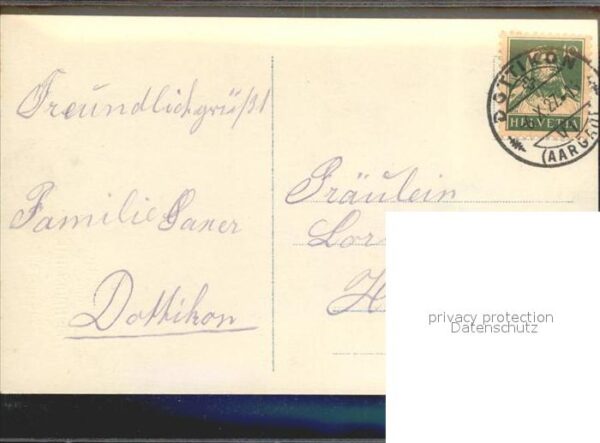 Freundlich grüßt
Familie Saner
Dottikon
Fräulein
Lor
H
10
HELVETIA
DOTTIKON
(AARGAU)
privacy protection
Datenschutz